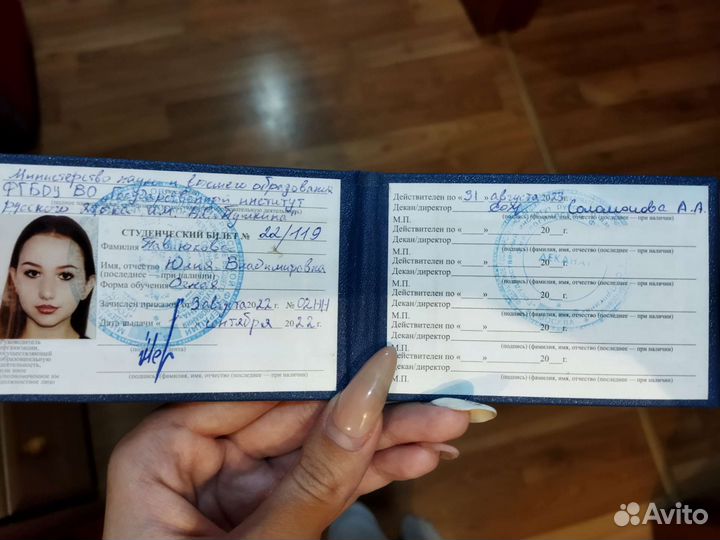 Министерство науки и высшего образования
ФГБОУ ВО Государственный институт
русского языка им. А.С. Пушкина
СТУДЕНЧЕСКИЙ БИЛЕТ № 22/119
Фамилия
Имя, отчество Юлия Владимировна
(последнее — при наличии)
Форма обучения Очная
Зачислен приказом от 3 августа 2022 г. №
Дата выдачи « сентября 2022 г.
Руководитель
организации,
осуществляющей
образовательную
деятельность,
или иное
уполномоченное им
должностное лицо
(подпись) (фамилия, имя, отчество (последнее — при наличии)
Действителен по «31» августа 2023 г.
Декан/директор Соломонова А.А.
М.П. (подпись) (фамилия, имя, отчество (последнее — при наличии)
Действителен по « » 20 г.
Декан/директор
М.П. (подпись) (фамилия, имя, отчество (последнее — при наличии)
Действителен по « » 20 г.
Декан/директор
М.П. (подпись) (фамилия, имя, отчество (последнее — при наличии)
Действителен по « » 20 г.
Декан/директор
М.П. (подпись) (фамилия, имя, отчество (последнее — при наличии)
Действителен по « » 20 г.
Декан/директор
М.П. (подпись) (фамилия, имя, отчество (последнее — при наличии)
ДЕКАНАТ
Avito